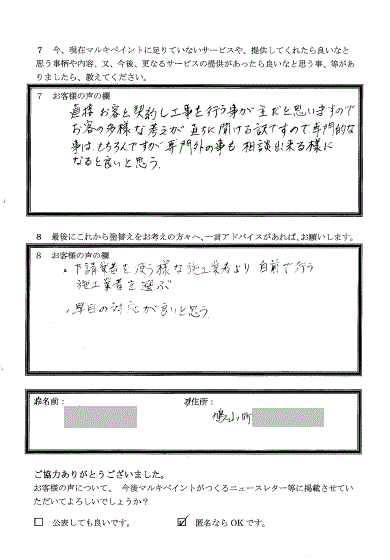 7 今、現在マルキペイントに足りていないサービスや、提供してくれたら良いなと
思う事柄や内容、又、今後、更なるサービスの提供があったら良いなと思う事、等があ
りましたら、教えてください。
7 お客様の声の欄
直接お客と契約し工事を行う事が主だと思いますので
お客の多様な考えが直ちに聞ける訳ですので専門的な
事は、もちろんですが専門外の事も相談出来る様に
なると良いと思う。
8 最後にこれから塗替えをお考えの方々へ、一言アドバイスがあれば、お願いします。
8 お客様の声の欄
・下請業者を使う様な施工業者より自前で行う
施工業者を選ぶ
・早目の対応が良いと思う。
お名前：
ご住所：
鳩山町
ご協力ありがとうございました。
お客様の声について、今後マルキペイントがつくるニュースレター等に掲載させてい
ただいてよろしいでしょうか？
□ 公表しても良いです。
☑ 匿名なら OK です。